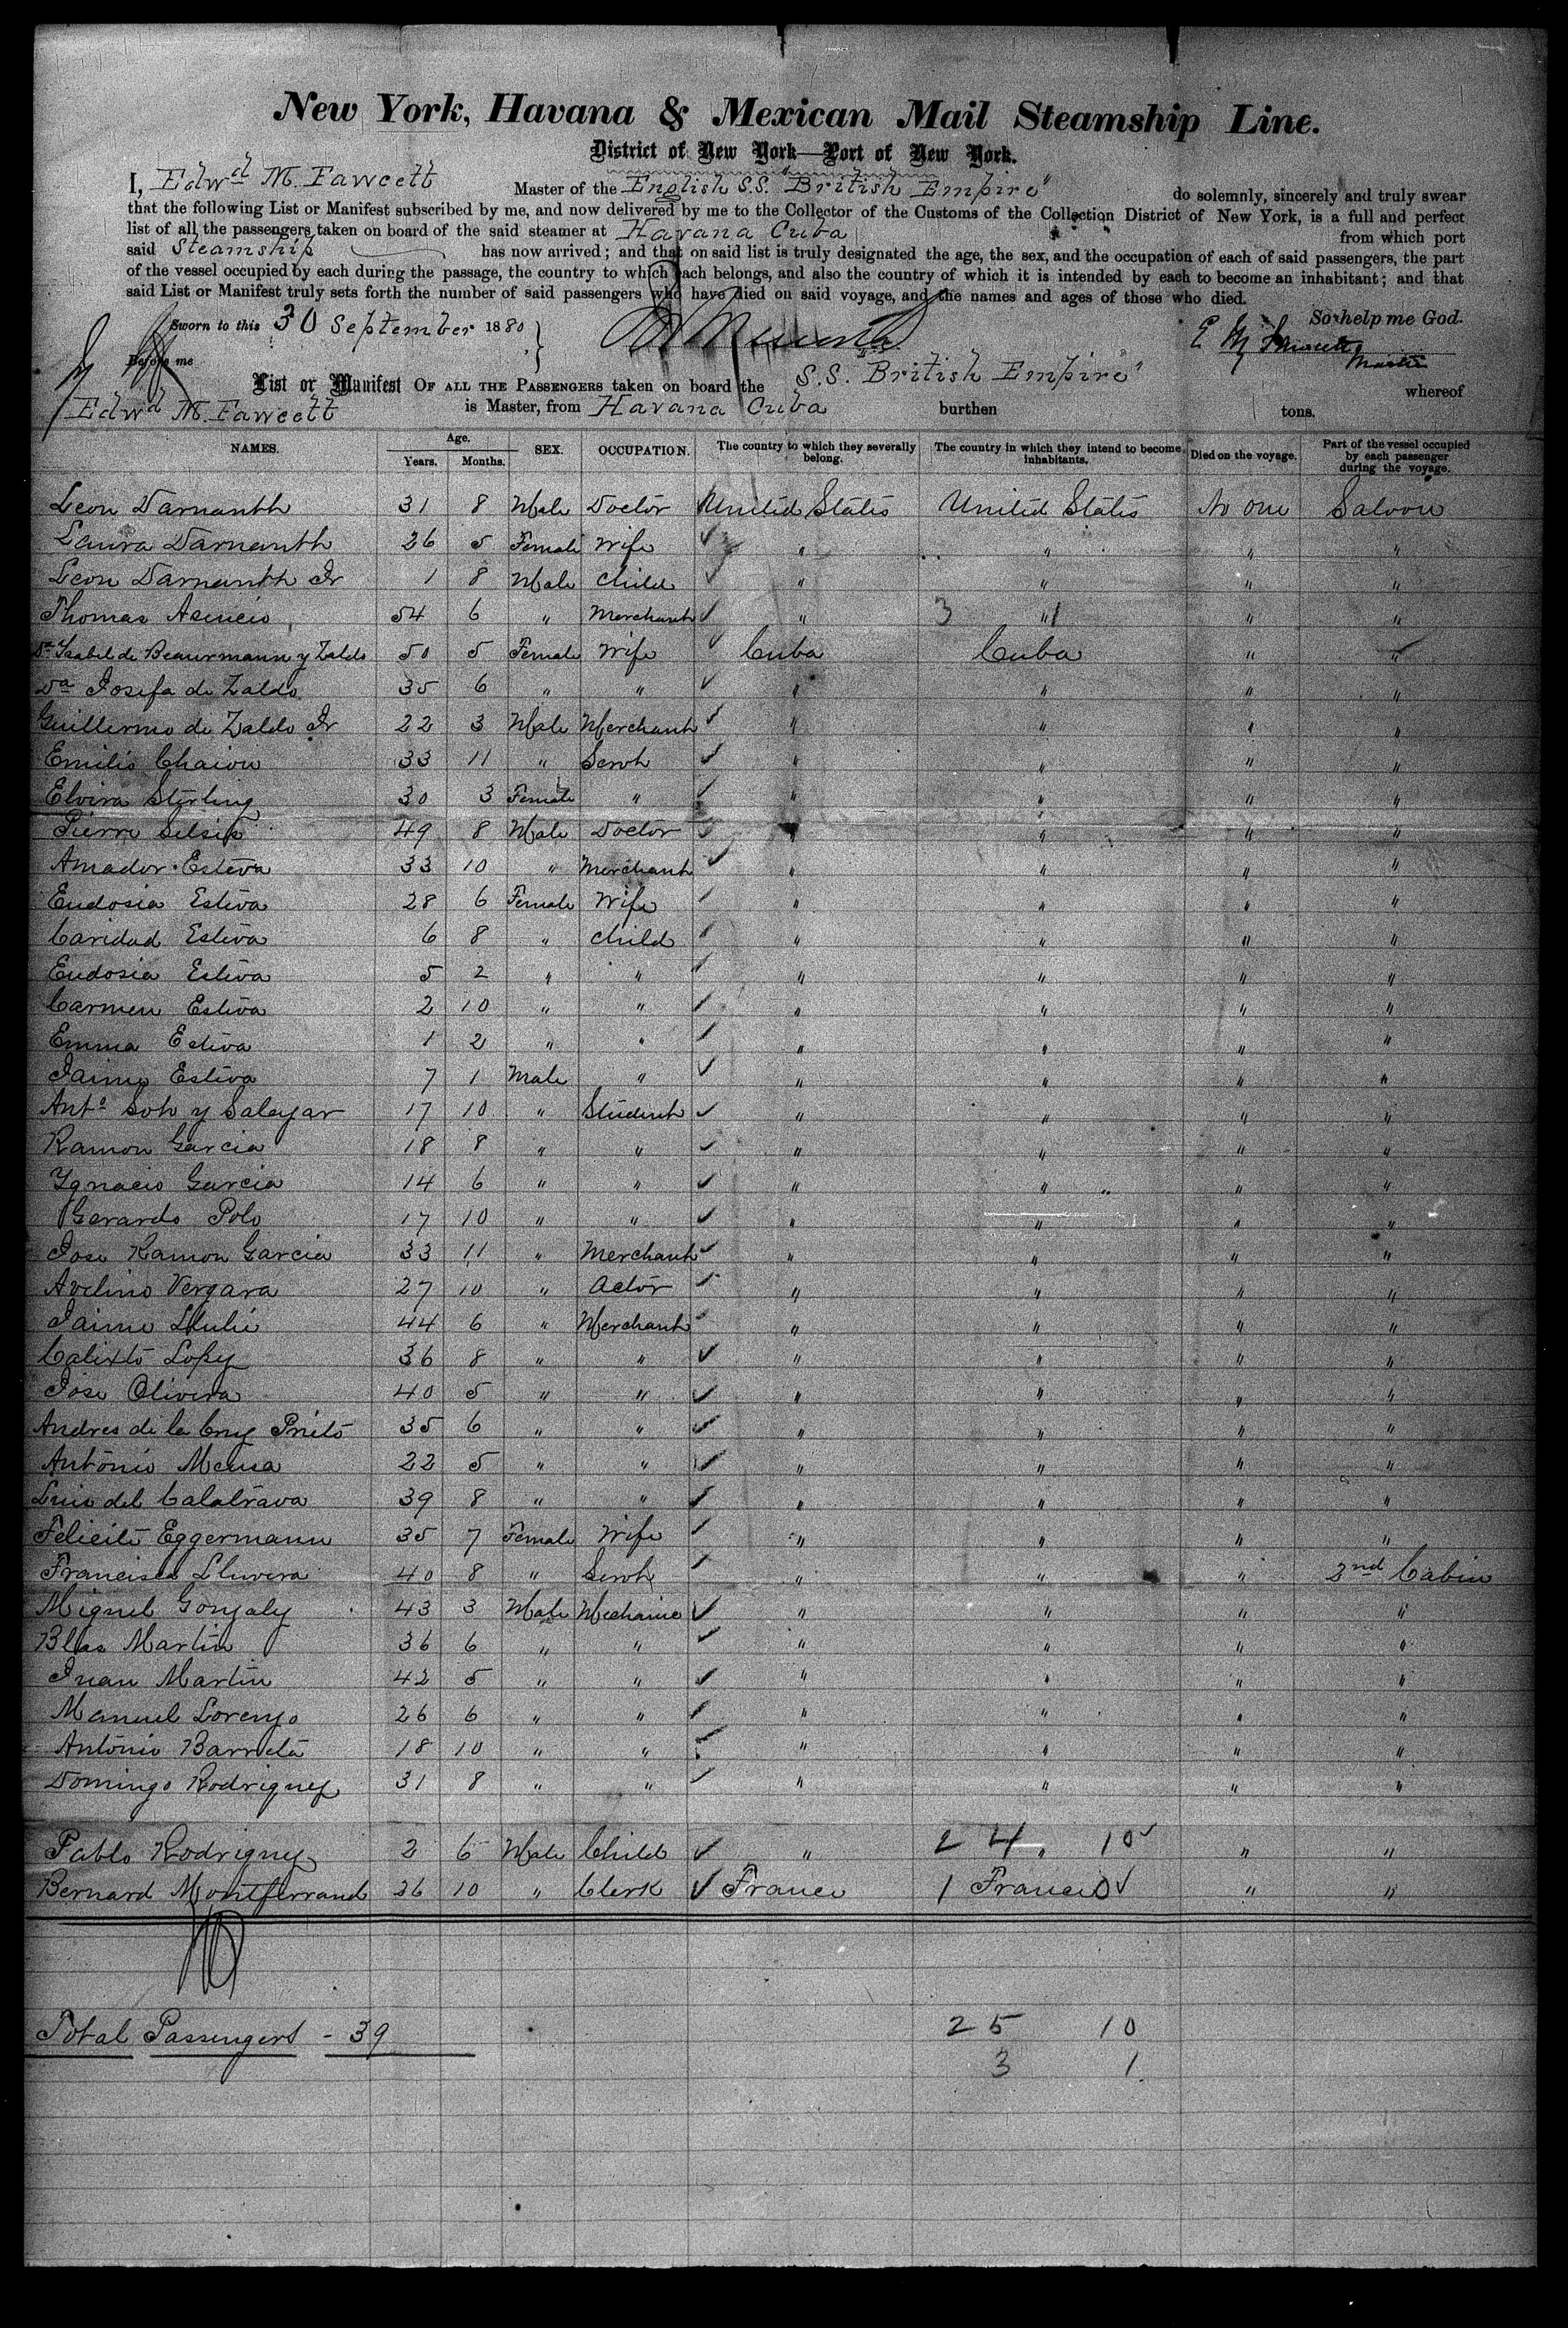 New York, Havana & Mexican Mail Steamship Line.
District of New York—Port of New York.
I, Edwd M. Fawcett Master of the English S.S. "British Empire" do solemnly, sincerely and truly swear
that the following List or Manifest subscribed by me, and now delivered by me to the Collector of the Customs of the Collection District of New York, is a full and perfect
list of all the passengers taken on board of the said steamer at Havana Cuba from which port
said Steamship has now arrived; and that on said list is truly designated the age, the sex, and the occupation of each of said passengers, the part
of the vessel occupied by each during the passage, the country to which each belongs, and also the country of which it is intended by each to become an inhabitant; and that
said List or Manifest truly sets forth the number of said passengers who have died on said voyage, and the names and ages of those who died.
Sworn to this 30 September 1880 So help me God.
Before me E M Fawcett
Master
List or Manifest OF ALL THE PASSENGERS taken on board the S.S. "British Empire" whereof
Edwd M. Fawcett is Master, from Havana Cuba burthen tons.
NAMES. Age. Years. Months. SEX. OCCUPATION. The country to which they severally belong. The country in which they intend to become inhabitants. Died on the voyage. Part of the vessel occupied by each passenger during the voyage.
Leon Darnanth 31 8 Male Doctor United States United States No one Saloon
Laura Darnanth 26 5 Female Wife " " " "
Leon Darnanth Jr 1 8 Male Child " " " "
Thomas Asencio 54 6 " Merchant " 3 " 1 " "
Da Ysabel de Beaurmann y Zaldo 50 5 Female Wife Cuba Cuba " "
Da Josefa de Zaldo 35 6 " " " " " "
Guillermo de Zaldo Jr 22 3 Male Merchant " " " "
Emilio 33 11 " Servt " " " "
Elvira Sterling 30 3 Female " " " " "
Pierre 49 8 Male Doctor " " " "
Amador Esteva 33 10 " Merchant " " " "
Eudosia Esteva 28 6 Female Wife " " " "
Caridad Esteva 6 8 " Child " " " "
Eudosia Esteva 5 2 " " " " " "
Carmen Esteva 2 10 " " " " " "
Emma Esteva 1 2 " " " " " "
Jaime Esteva 7 1 Male " " " " "
Anto Soto y Salazar 17 10 " Student " " " "
Ramon Garcia 18 8 " " " " " "
Ygnacio Garcia 14 6 " " " " " "
Gerardo Polo 17 10 " " " " " "
Jose Ramon Garcia 33 11 " Merchant " " " "
Avelino Vergara 27 10 " Actor " " " "
Jaime 44 6 " Merchant " " " "
Calixto Lopez 36 8 " " " " " "
Jose Olivera 40 5 " " " " " "
Andres de la Cruz Prieto 35 6 " " " " " "
Antonio Mensa 22 5 " " " " " "
Luis del Calatrava 39 8 " " " " " "
Felicité Eggermann 35 7 Female Wife " " " "
Francisca Lluvera 40 8 " Servt " " " 2nd Cabin
Miguel Gonzalez 43 3 Male Mechanic " " " "
Blas Martin 36 6 " " " " " "
Juan Martin 42 5 " " " " " "
Manuel Lorenzo 26 6 " " " " " "
Antonio Barreta 18 10 " " " " " "
Domingo Rodriguez 31 8 " " " " " "
Pablo Rodriguez 2 6 Male Child " 24 " 10 " "
Bernard Montferrand 26 10 " Clerk France 1 France 0 " "
Total Passengers - 39 25 10
3 1